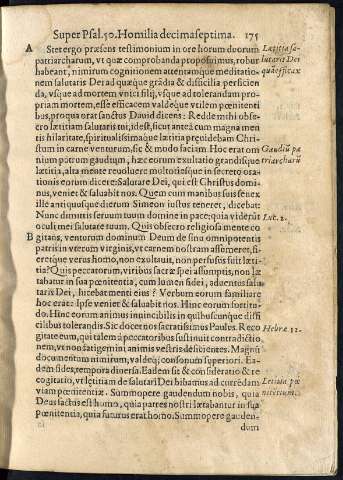 Super Psal. 50. Homilia decimaseptima. 175
A Stet ergo præsens testimonium in ore horum duorum
patriarcharum, vt quæ comprobanda proposuimus, robur
habeant, nimirum cognitionem attentamque meditatio-
nem salutaris Dei ad quædã difficilia gradũ & ascensum
da, vsque ad mortem vnici filij, vsque ad tolerandam pro-
priam mortem, esse efficacem valdeque vtilem pœnitenti
bus, pro qua orat sanctus David dicens: Redde mihi obse-
cro lætitiam salutaris tui, id est, sicut anteà cum magna men
tis hilaritate, spiritualissimaque lætitia prævidebam Chri-
stum in carne venturum, sic & modo faciam. Hoc erat om
nium patrum gaudium, hæc eorum exultatio grandisque
lætitia, alta mente revoluere moltotiesque in secreto ora-
tionis eorum dicere: Salutare Dei, qui est Christus domi-
nus, veniet & saluabit nos. Quem cum manibus suis senex
ille antiquusque dierum Simeon iustus teneret, dicebat:
Nunc dimittis seruum tuum domine in pace: quia viderũt
oculi mei salutare tuum. Quis obsecro religiosa mente co
B gitans, venturum dominum Deum de sinu omnipotentis
patris in vterum virginis, vt carnem nostram assumeret, fi-
eretque verus homo, non exultauit, non perfusus fuit læti-
tia? Quis peccatorum, viribus sacræ spei assumptis, non læ
tabatur in sua pœnitentia, cum lumen fidei, aduentus salu-
taris Dei, lucebat menti eius? Verbum eorum familiare
hoc erat: Ipse veniet & saluabit nos. Hinc eorum fortitu-
do. Hinc eorum animus inuincibilis in quibuscunque diffi
cilibus tolerandis. Sic docet nos sacratissimus Paulus. Reco
gitate eum, qui talem à peccatoribus sustinuit contradictio
nem, vt non fatigemini animis vestris deficientes. Magnũ
documentum nimirum, valdeq; consonum superiori. Ea-
dem fides, tempora diuersa. Eadem sit & consideratio & re
cogitatio, vt lętitiam de salutari Dei bibamus ad currẽdam
viam pœnitentiæ. Summopere gaudendum nobis, quia
Deus factus est homo, quia patres nostri lætabantur in sua
pœnitentia, quia futurus erat homo. Summopere gauden-
dum
Lætitia sa-
lutaris Dei
quã efficax
Gaudiũ pa
triarcharũ
Luc. 2.
Hebræ. 12.
Letitia pœ
nitentiũ.